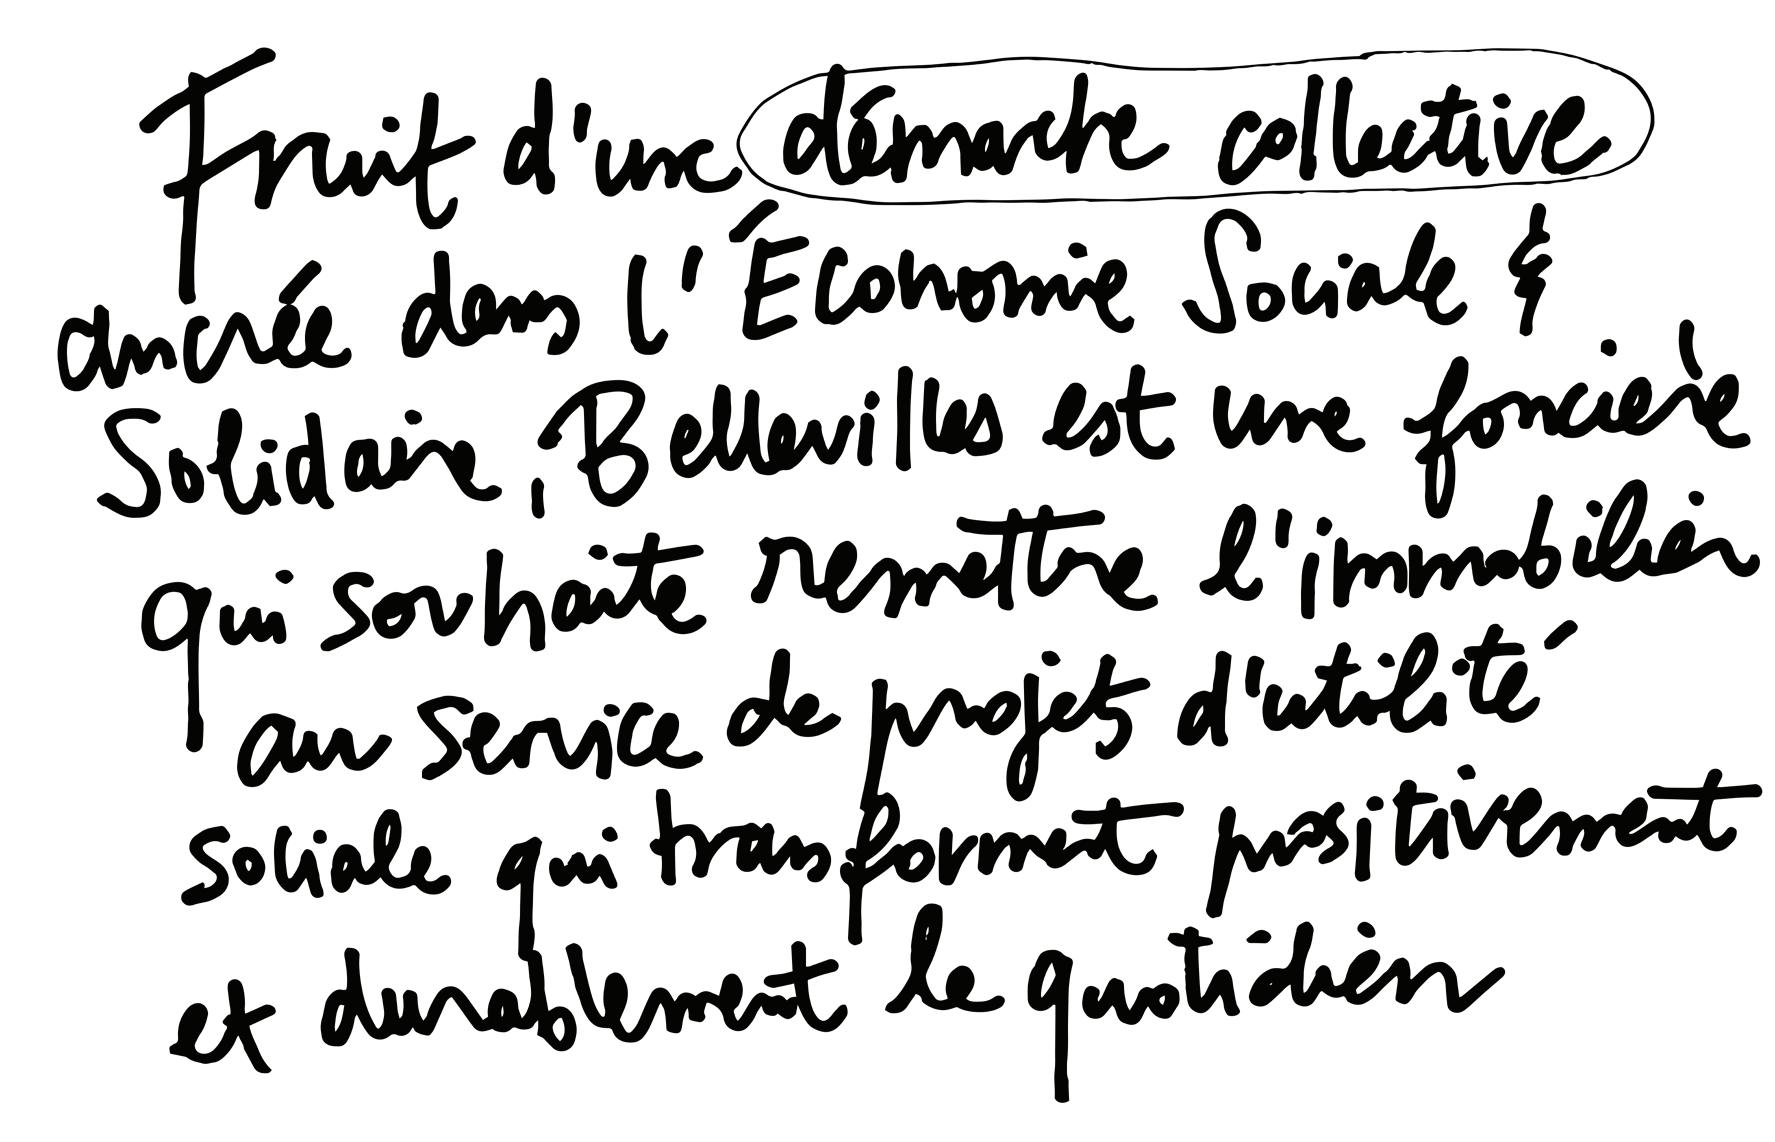 Fruit d'une démarche collective
ancrée dans l'Économie Sociale &
Solidaire, Bellevilles est une foncière
qui souhaite remettre l'immobilier
au service de projets d'utilité
sociale qui transforment positivement
et durablement le quotidien